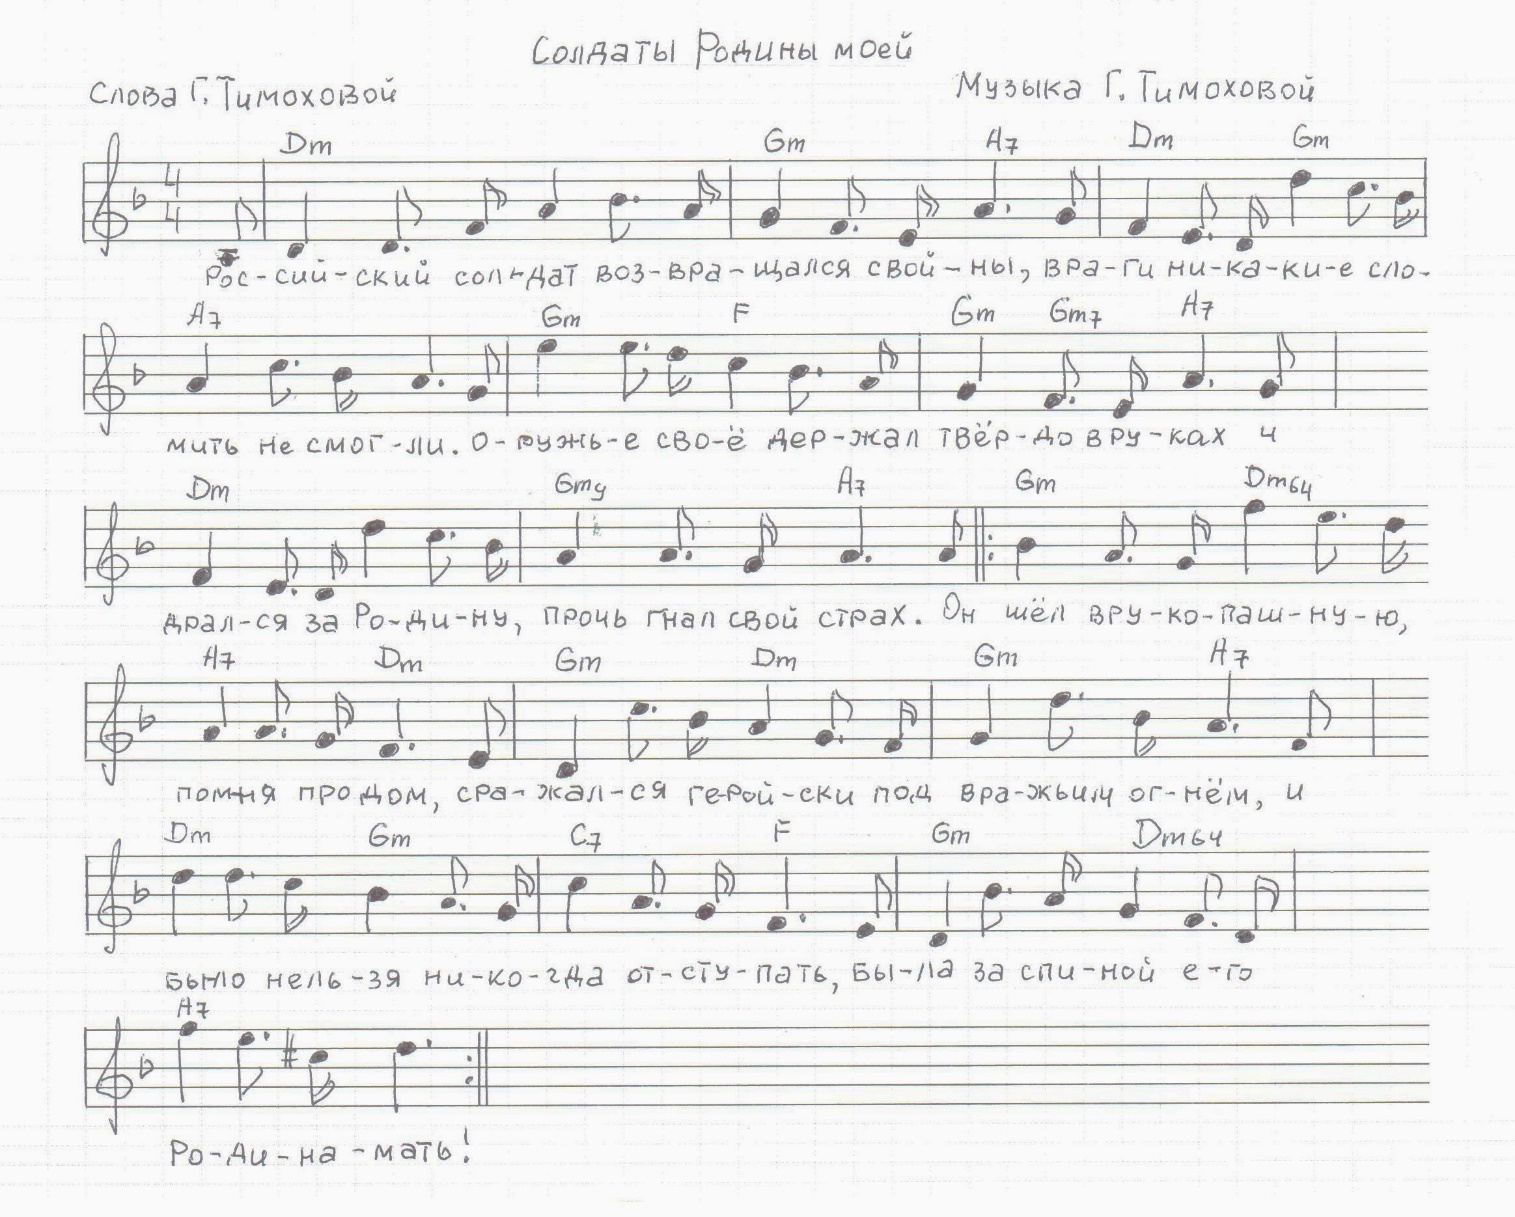 Солдаты Родины моей
Слова Г. Тимоховой Музыка Г. Тимоховой
Dm Gm A7 Dm Gm
4
4
Рос-сий-ский сол-дат воз-вра-щался свой-ны, вра-ги ни-ка-ки-е сло-
A7 Gm F Gm Gm7 A7
мить не смог-ли. О-ружь-е сво-ё дер-жал твёр-до вру-ках и
Dm Gmy A7 Gm Dm64
драл-ся за Ро-ди-ну, прочь гнал свой страх. Он шёл вру-ко-паш-ну-ю,
A7 Dm Gm Dm Gm A7
помня про дом, сра-жал-ся герой-ски под вра-жьим ог-нём, и
Dm Gm C7 F Gm Dm64
было нель-зя ни-ко-гда от-сту-пать, бы-ла за спи-ной е-го
A7
Ро-ди-на-мать!